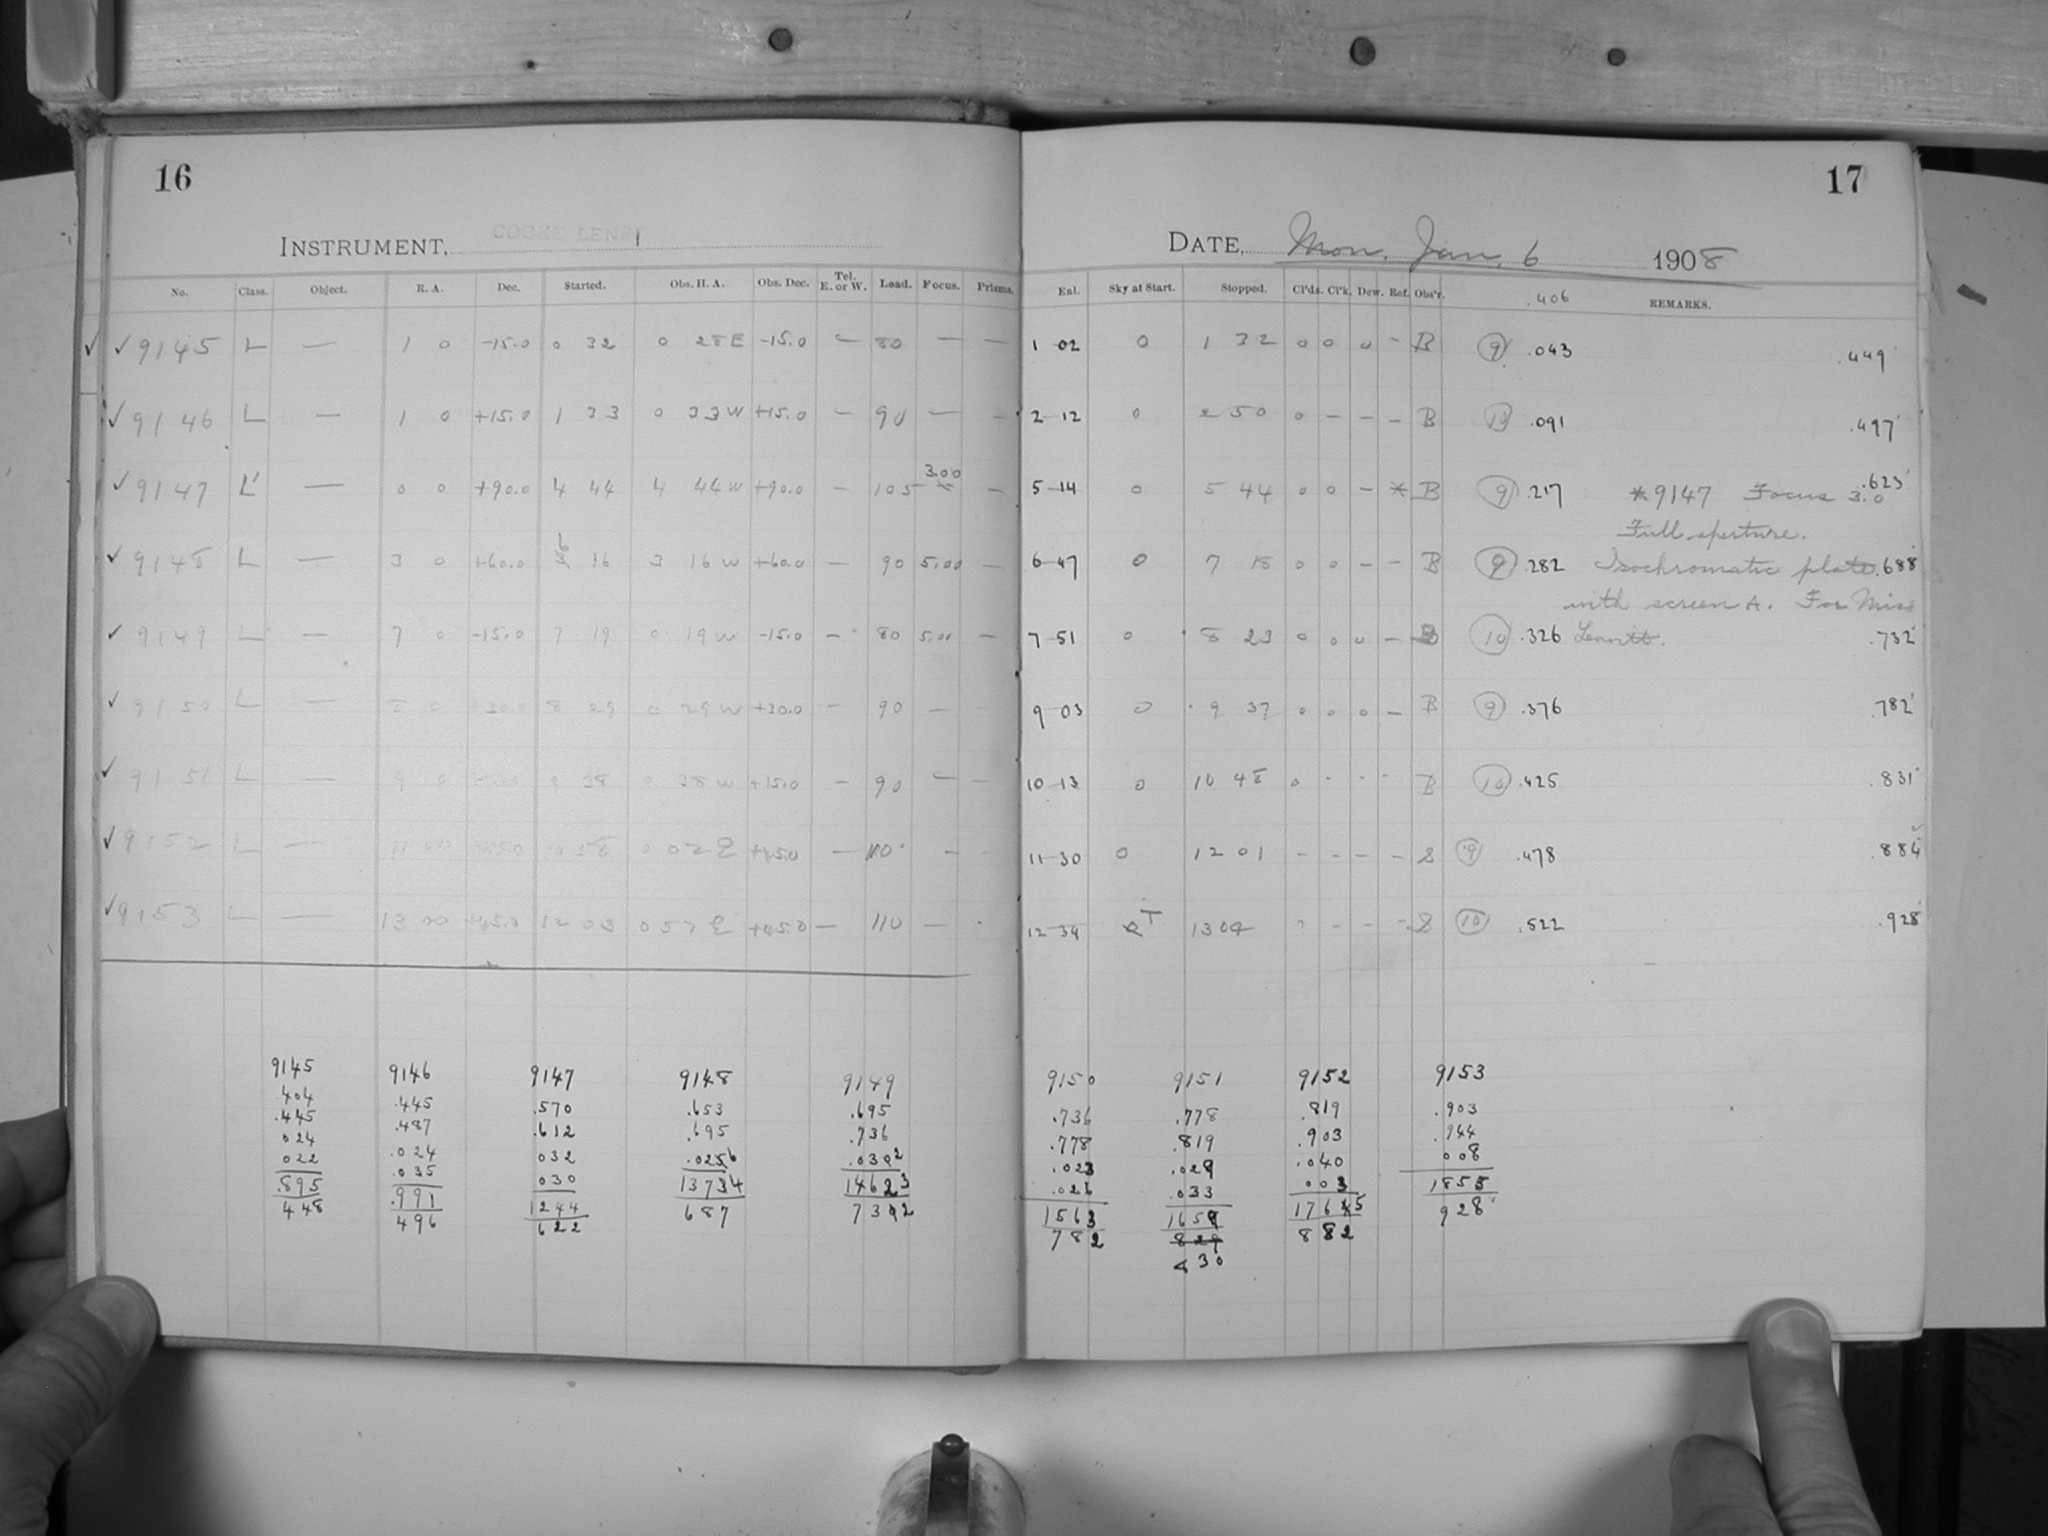 16
17
INSTRUMENT, COOKE LENS
DATE, Mon. Jan. 6 1908
No. Class. Object. R. A. Dec. Started. Obs. H. A. Obs. Dec. Tel. E. or W. Load. Focus. Prisms. Enl. Sky at Start. Stopped. Cl'ds. Cl'k. Dew. Ref. Obs'r. .406 REMARKS.
✓ ✓ 9145 L — 1 0 -15.0 0 32 0 28 E -15.0 — 80 — — 1-02 0 1 32 0 0 0 - B 9 .043 .449
✓ 9146 L — 1 0 +15.0 1 33 0 33 W +15.0 — 90 — — 2-12 0 2 50 0 — — — B 10 .091 .497
✓ 9147 L' — 0 0 +90.0 4 44 4 44 W +90.0 — 105 3.00 — 5-14 0 5 44 0 0 — * B 9 .217 * 9147 Focus 3.0 .623
Full aperture.
✓ 9148 L — 3 0 +60.0 6 16 3 16 W +60.0 — 90 5.00 — 6-47 0 7 18 0 0 — — B 9 .282 Isochromatic plate .688
with screen A. For Miss
✓ 9149 L — 7 0 -15.0 7 19 0 19 W -15.0 — 80 5.00 — 7-51 0 8 23 0 0 0 — B 10 .326 Leavitt. .732
✓ 9150 L — 8 0 +30.0 8 29 0 29 W +30.0 — 90 — — 9-03 0 9 37 0 0 0 — B 9 .376 .782
✓ 9151 L — 9 0 9 38 0 38 W +15.0 — 90 — — 10-13 0 10 48 0 - - - B 10 .425 .831
✓ 9152 L — 11 00 0 02 E +45.0 — 110 — — 11-30 0 12 01 — — — — S 9 .478 .884
✓ 9153 L — 13 00 +45.0 12 03 0 57 E +45.0 — 110 — - 12-34 13 04 — — - S 10 .522 .928
9145 9146 9147 9148 9149 9150 9151 9152 9153
.404 .445 .570 .653 .695 .736 .778 .819 .903
.445 .487 .612 .695 .736 .778 .819 .903 .944
024 .024 032 .0256 .0302 .023 .029 .040 008
022 .035 030 13734 14623 .026 .033 003 1855
.895 .991 1244 687 732 1563 1659 1765 928
448 496 622 782 829 882
830